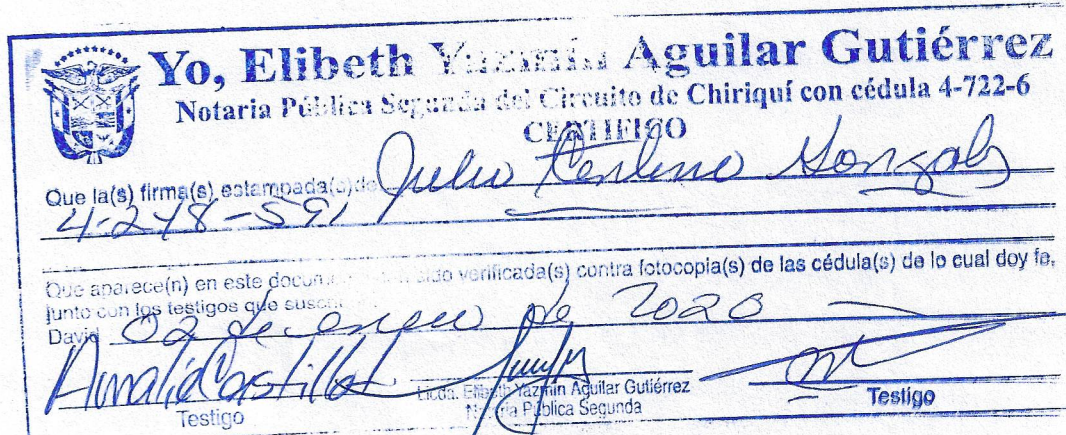 Yo, Elibeth Yazmín Aguilar Gutiérrez
Notaria Pública Segunda del Circuito de Chiriquí con cédula 4-722-6
CERTIFICO
Que la(s) firma(s) estampada(s) de Julio González
4-278-591
Que aparece(n) en este documento sido verificada(s) contra fotocopia(s) de las cédula(s) de lo cual doy fe,
junto con los testigos que
David 02 de enero de 2020
Amalia Castillo
Licda. Elibeth Yazmín Aguilar Gutiérrez
Testigo Notaria Pública Segunda Testigo